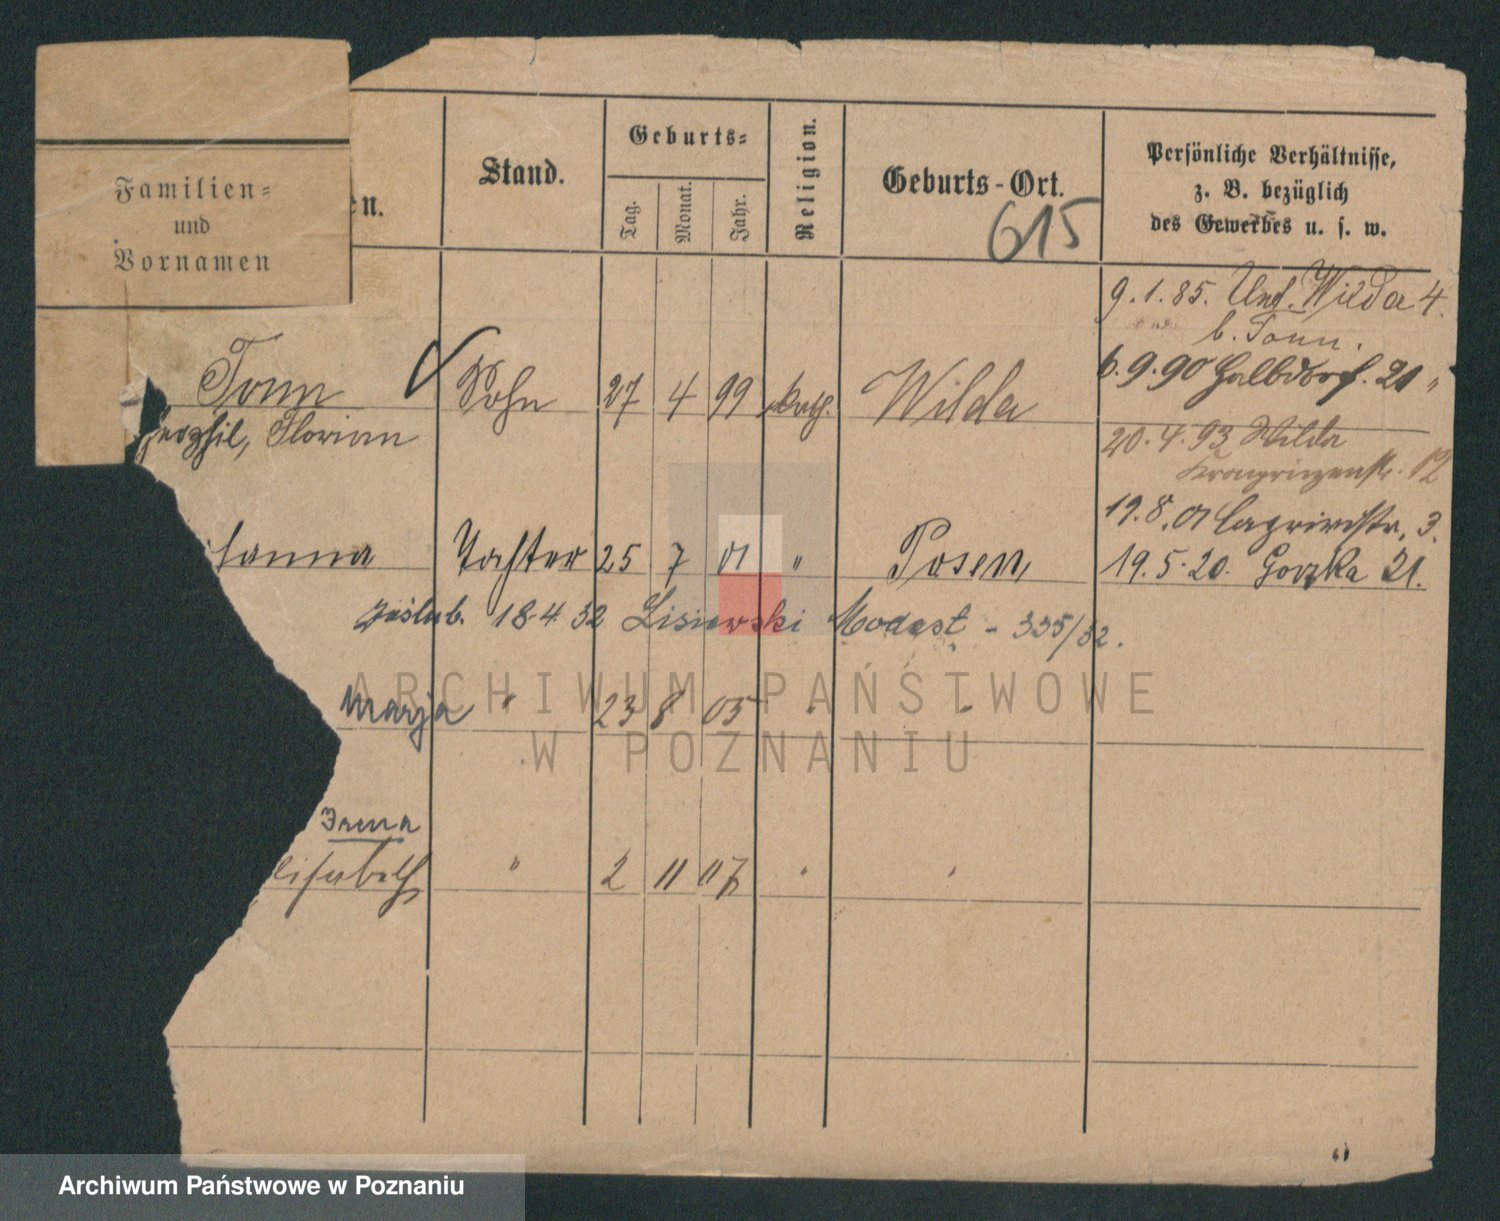 Familien-
und
Vornamen
en.
Stand.
Geburts-
Tag.
Monat.
Jahr.
Religion.
Geburts-Ort.
615
Persönliche Verhältnisse,
z. B. bezüglich
des Gewerbes u. s. w.
9.1.85. Unt. Wilda 4.
b. Tonn.
6.9.90 Halbdorf. 21 "
Tomn Sohn 27 4 99 kath. Wilda
Florian
20.4.93 Wilda
Kronprinzenstr. 12
19.8.01 Caprivistr. 3.
anna Tochter 25 7 01 " Posen
19.5.20. Gorzka 21.
zaślub. 18.4.32 Lisiewski Modest - 335/32.
Marja " 23 8 05 " "
Irena
lisabeth " 2 11 07 " "
ARCHIWUM PAŃSTWOWE
W POZNANIU
Archiwum Państwowe w Poznaniu